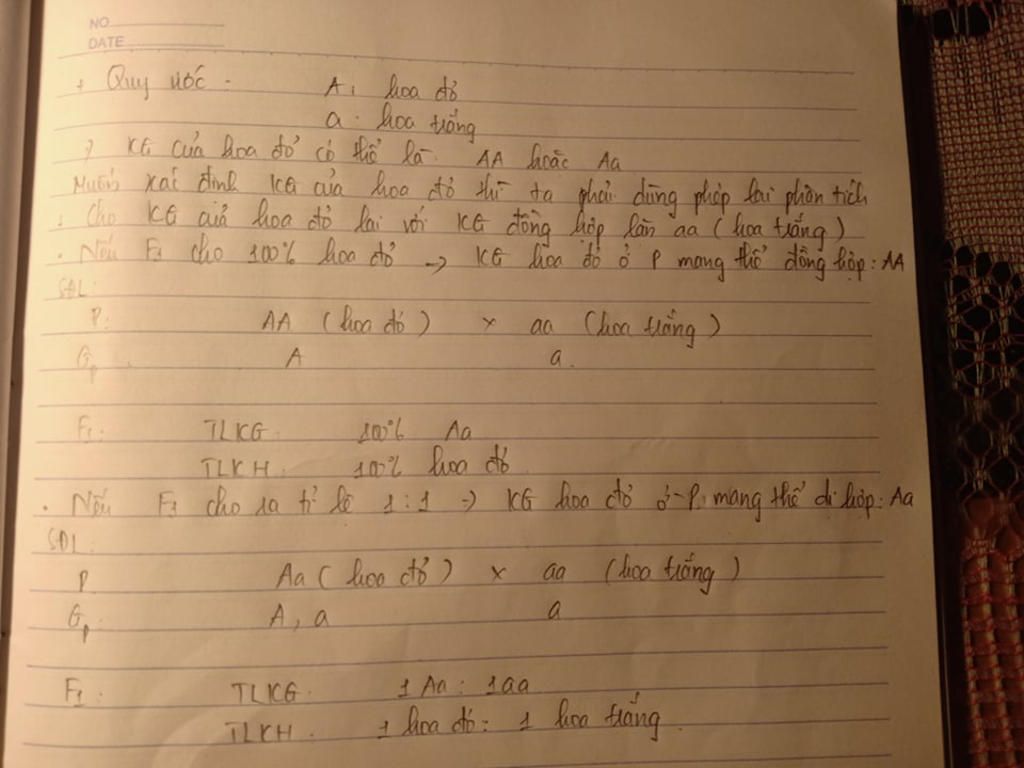 NO
DATE
+ Quy ước : A: hoa đỏ
a: hoa trắng
=> KG của hoa đỏ có thể là: AA hoặc Aa
Muốn xác định KG của hoa đỏ thì ta phải dùng phép lai phân tích
: Cho KG của hoa đỏ lai với KG đồng hợp lặn aa (hoa trắng)
. Nếu F1 cho 100% hoa đỏ -> KG hoa đỏ ở P mang thể đồng hợp: AA
SĐL:
P: AA (hoa đỏ) x aa (hoa trắng)
Gp: A a
F1: TLKG: 100% Aa
TLKH: 100% hoa đỏ
. Nếu F1 cho ra tỉ lệ 1:1 => KG hoa đỏ ở P mang thể dị hợp: Aa
SĐL:
P Aa (hoa đỏ) x aa (hoa trắng)
Gp: A, a a
F1: TLKG: 1 Aa : 1aa
TLKH: 1 hoa đỏ: 1 hoa trắng